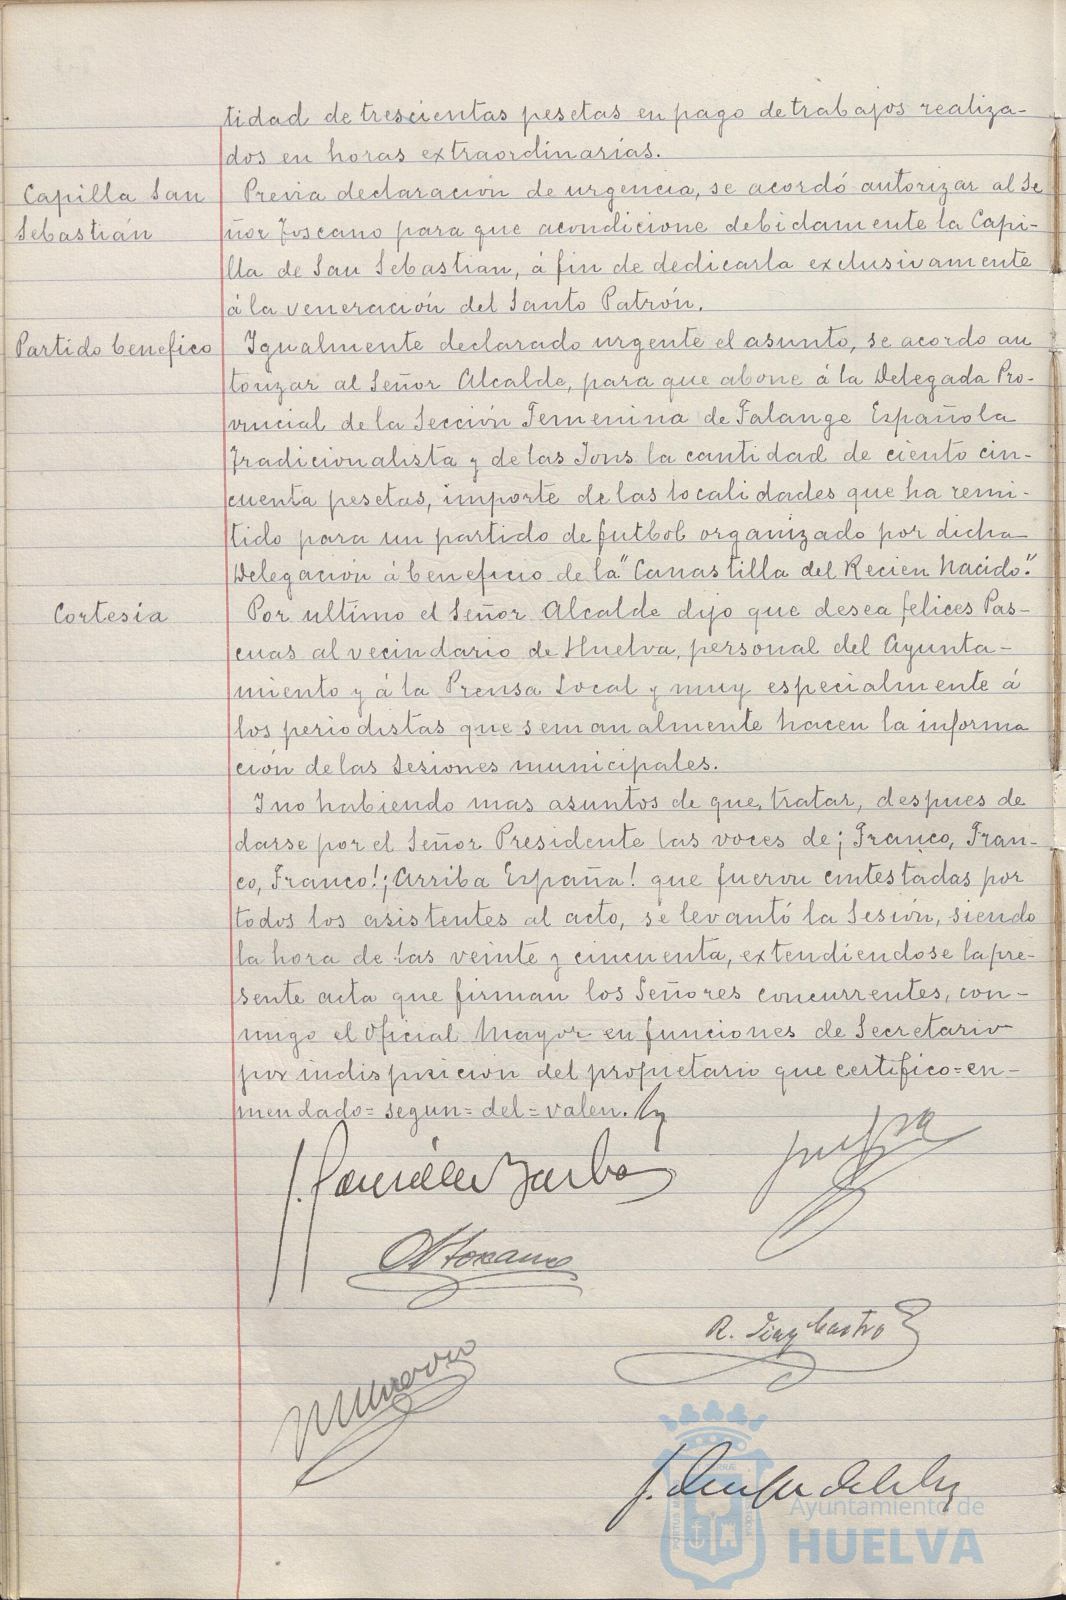 tidad de trescientas pesetas en pago de trabajos realiza-
dos en horas extraordinarias.
Capilla San
Sebastián
Previa declaración de urgencia, se acordó autorizar al Se
ñor Toscano para que acondicione debidamente la Capi-
lla de San Sebastian, á fin de dedicarla exclusivamente
á la veneración del Santo Patrón.
Partido benefico
Igualmente declarado urgente el asunto, se acordo au
torizar al Señor Alcalde, para que abone á la Delegada Pro-
vincial de la Sección Femenina de Falange Española
Tradicionalista y de las Jons la cantidad de ciento cin-
cuenta pesetas, importe de las localidades que ha remi-
tido para un partido de futbol organizado por dicha
Delegación á beneficio de la "Canastilla del Recien Nacido".
Cortesía
Por ultimo el Señor Alcalde dijo que desea felices Pas-
cuas al vecindario de Huelva, personal del Ayunta-
miento y á la Prensa Local y muy especialmente á
los periodistas que semanalmente hacen la informa
ción de las sesiones municipales.
Y no habiendo mas asuntos de que tratar, despues de
darse por el Señor Presidente las voces de ¡Franco, Fran-
co, Franco! ¡Arriba España! que fueron contestadas por
todos los asistentes al acto, se levantó la Sesión, siendo
la hora de las veinte y cincuenta, extendiendose la pre-
sente acta que firman los Señores concurrentes, con-
migo el Oficial Mayor en funciones de Secretario
por indisposicion del propietario que certifico=en-
mendado= segun= del= valen.
R. Diaz Castro
Ayuntamiento de
HUELVA